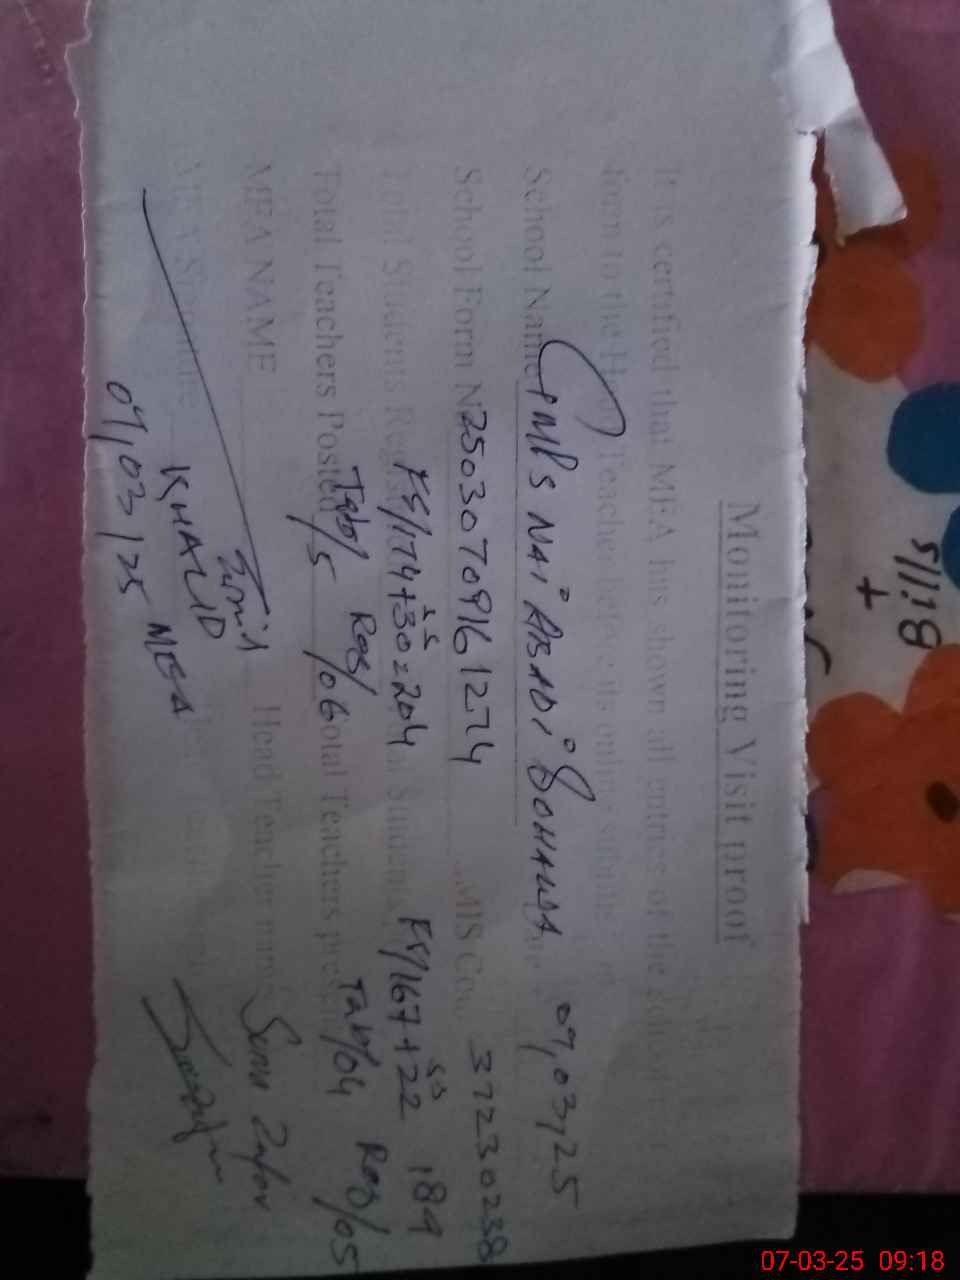 Monitoring Visit proof
It is certified that MEA has shown all entries of the school
form to the Head Teacher before its online submit
School Name GMPS NAI ABADI BOHANNA 07,03,25
School Form N 250307091612274 MIS Co 37230238
Total Students Regist FS/174+30=204 Students FS/167+22 189
Total Teachers Posted Tab/5 Reg/06 Total Teachers pres Tab/04 Reg/05
MEA NAME Head Teacher name
KHALID MEA
07/03/25
Bills
+
07-03-25 09:18